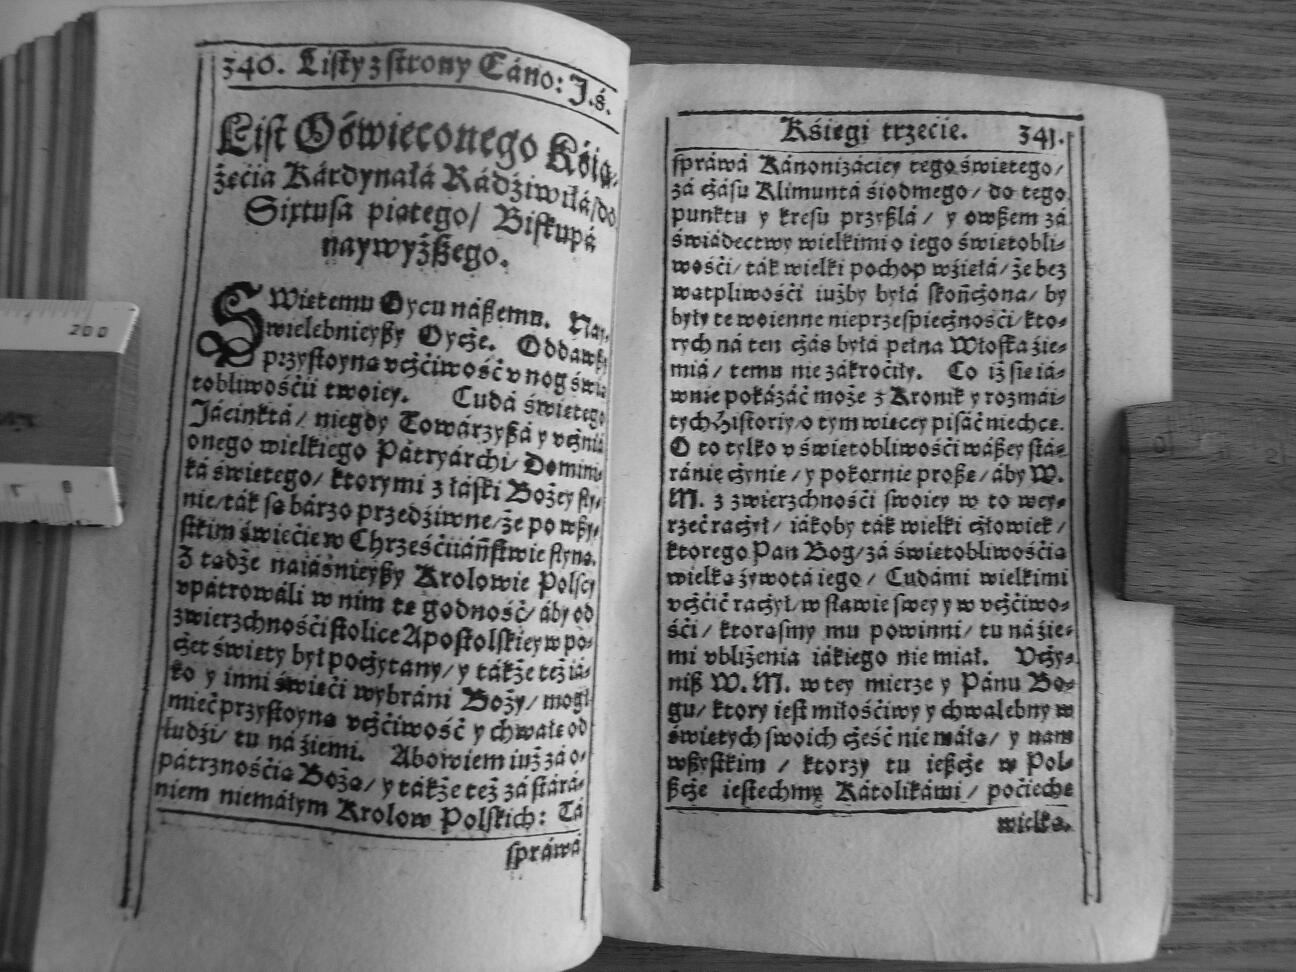 340. Listy z strony Cáno: J. ś.
List Oświeconego Kśią-
żećia Kárdynałá Rádźiwiłá/ do
Sixtusa piątego/ Biskupá
naywyżßego.
SWiętemu Oycu náßemu. Nay-
wielebnieyßy Oycże. Oddawßy
przystoyną vcżćiwość v nog świą-
tobliwośćii twoiey. Cudá świętego
Jácinktá/ niegdy Towárzyßá y vcżniá
onego wielkiego Pátryárchi/ Domini-
ká świętego/ ktorymi z łáski Bożey sły-
nie/ ták są bárzo przedźiwne/ że po wßy-
stkim świećie w Chrześćiiáństwie słyną.
Z tądże naiáśnieyßy Krolowie Polscy
vpátrowáli w nim tę godność/ áby od
zwierzchnośći stolice Apostolskiey w po-
cżet święty był pocżytany/ y tákże też iá-
ko y inni świeći wybráni Boży/ mogł
mieć przystoyną vcżćiwość y chwałę od
ludźi/ tu ná źiemi. Abowiem iuż zá o-
pátrznośćią Bożą/ y tákże też zá stárá-
niem niemáłym Krolow Polskich: Tá
spráwá
Kśięgi trzecie. 341.
spráwá Kánonizáciey tego świętego/
zá cżásu Klimuntá śiodmego/ do tego
punktu y kresu przyßlá/ y owßem zá
świádectwy wielkimi o iego świętobli-
wośći/ ták wielki pochop wźięłá/ że bez
wątpliwośći iużby byłá skońcżona/ by
były te woienne nieprzespiecżnośći/ kto-
rych ná ten cżás byłá pełna Włoska źie-
miá/ temu nie zákrocżiły. Co iż się iá-
wnie pokázáć może z Kronik y rozmái-
tych Historiy/ o tym więcey pisáć niechcę.
O to tylko v świętobliwośći wáßey stá-
ránie cżynię/ y pokornie proßę/ áby W.
M. z zwierzchnośći swoiey w to wey-
rzeć racżył/ iákoby ták wielki cżłowiek/
ktorego Pan Bog/ zá świętobliwośćią
wielką żywotá iego/ Cudámi wielkimi
vcżćić racżył/ w sławie swey y w vcżćiwo-
śći/ ktorąsmy mu powinni/ tu ná źie-
mi vbliżenia iákiego nie miał. Vcży-
niß W. M. w tey mierze y Pánu Bo-
gu/ ktory iest miłośćiwy y chwalebny w
świętych swoich cżęść nie máłą/ y nam
wßystkim / ktorzy tu ießcże w Pol-
ßcże iestechmy Kátolikámi/ poćiechę
wielką.